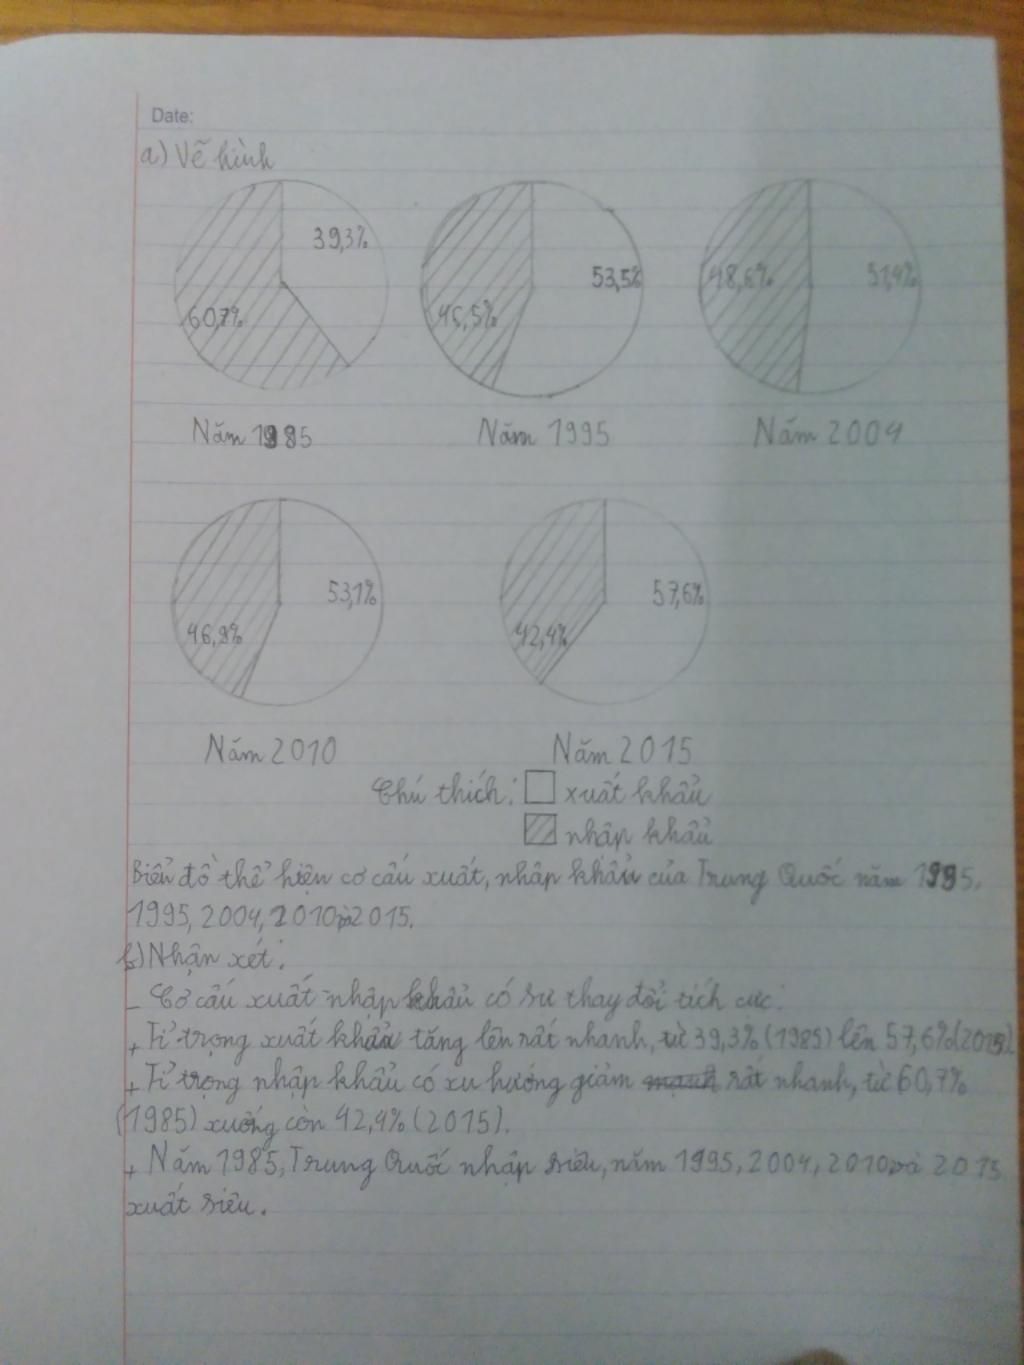 Date:
a) Vẽ hình
39,3%
60,7%
53,5%
46,5%
51,4%
48,6%
Năm 1985
Năm 1995
Năm 2004
53,1%
46,9%
57,6%
42,4%
Năm 2010
Năm 2015
Chú thích: xuất khẩu
nhập khẩu
Biểu đồ thể hiện cơ cấu xuất, nhập khẩu của Trung Quốc năm 1995,
1995, 2004, 2010 và 2015.
b) Nhận xét:
- Cơ cấu xuất - nhập khẩu có sự thay đổi tích cực:
+ Tỉ trọng xuất khẩu tăng lên rất nhanh, từ 39,3% (1985) lên 57,6% (2015)
+ Tỉ trọng nhập khẩu có xu hướng giảm rất nhanh, từ 60,7%
(1985) xuống còn 42,4% (2015).
+ Năm 1985, Trung Quốc nhập siêu, năm 1995, 2004, 2010 và 2015
xuất siêu.